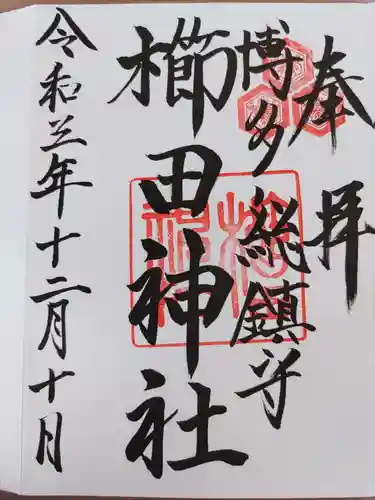 奉拝
博多総鎮守
櫛田神社
令和三年十二月十日